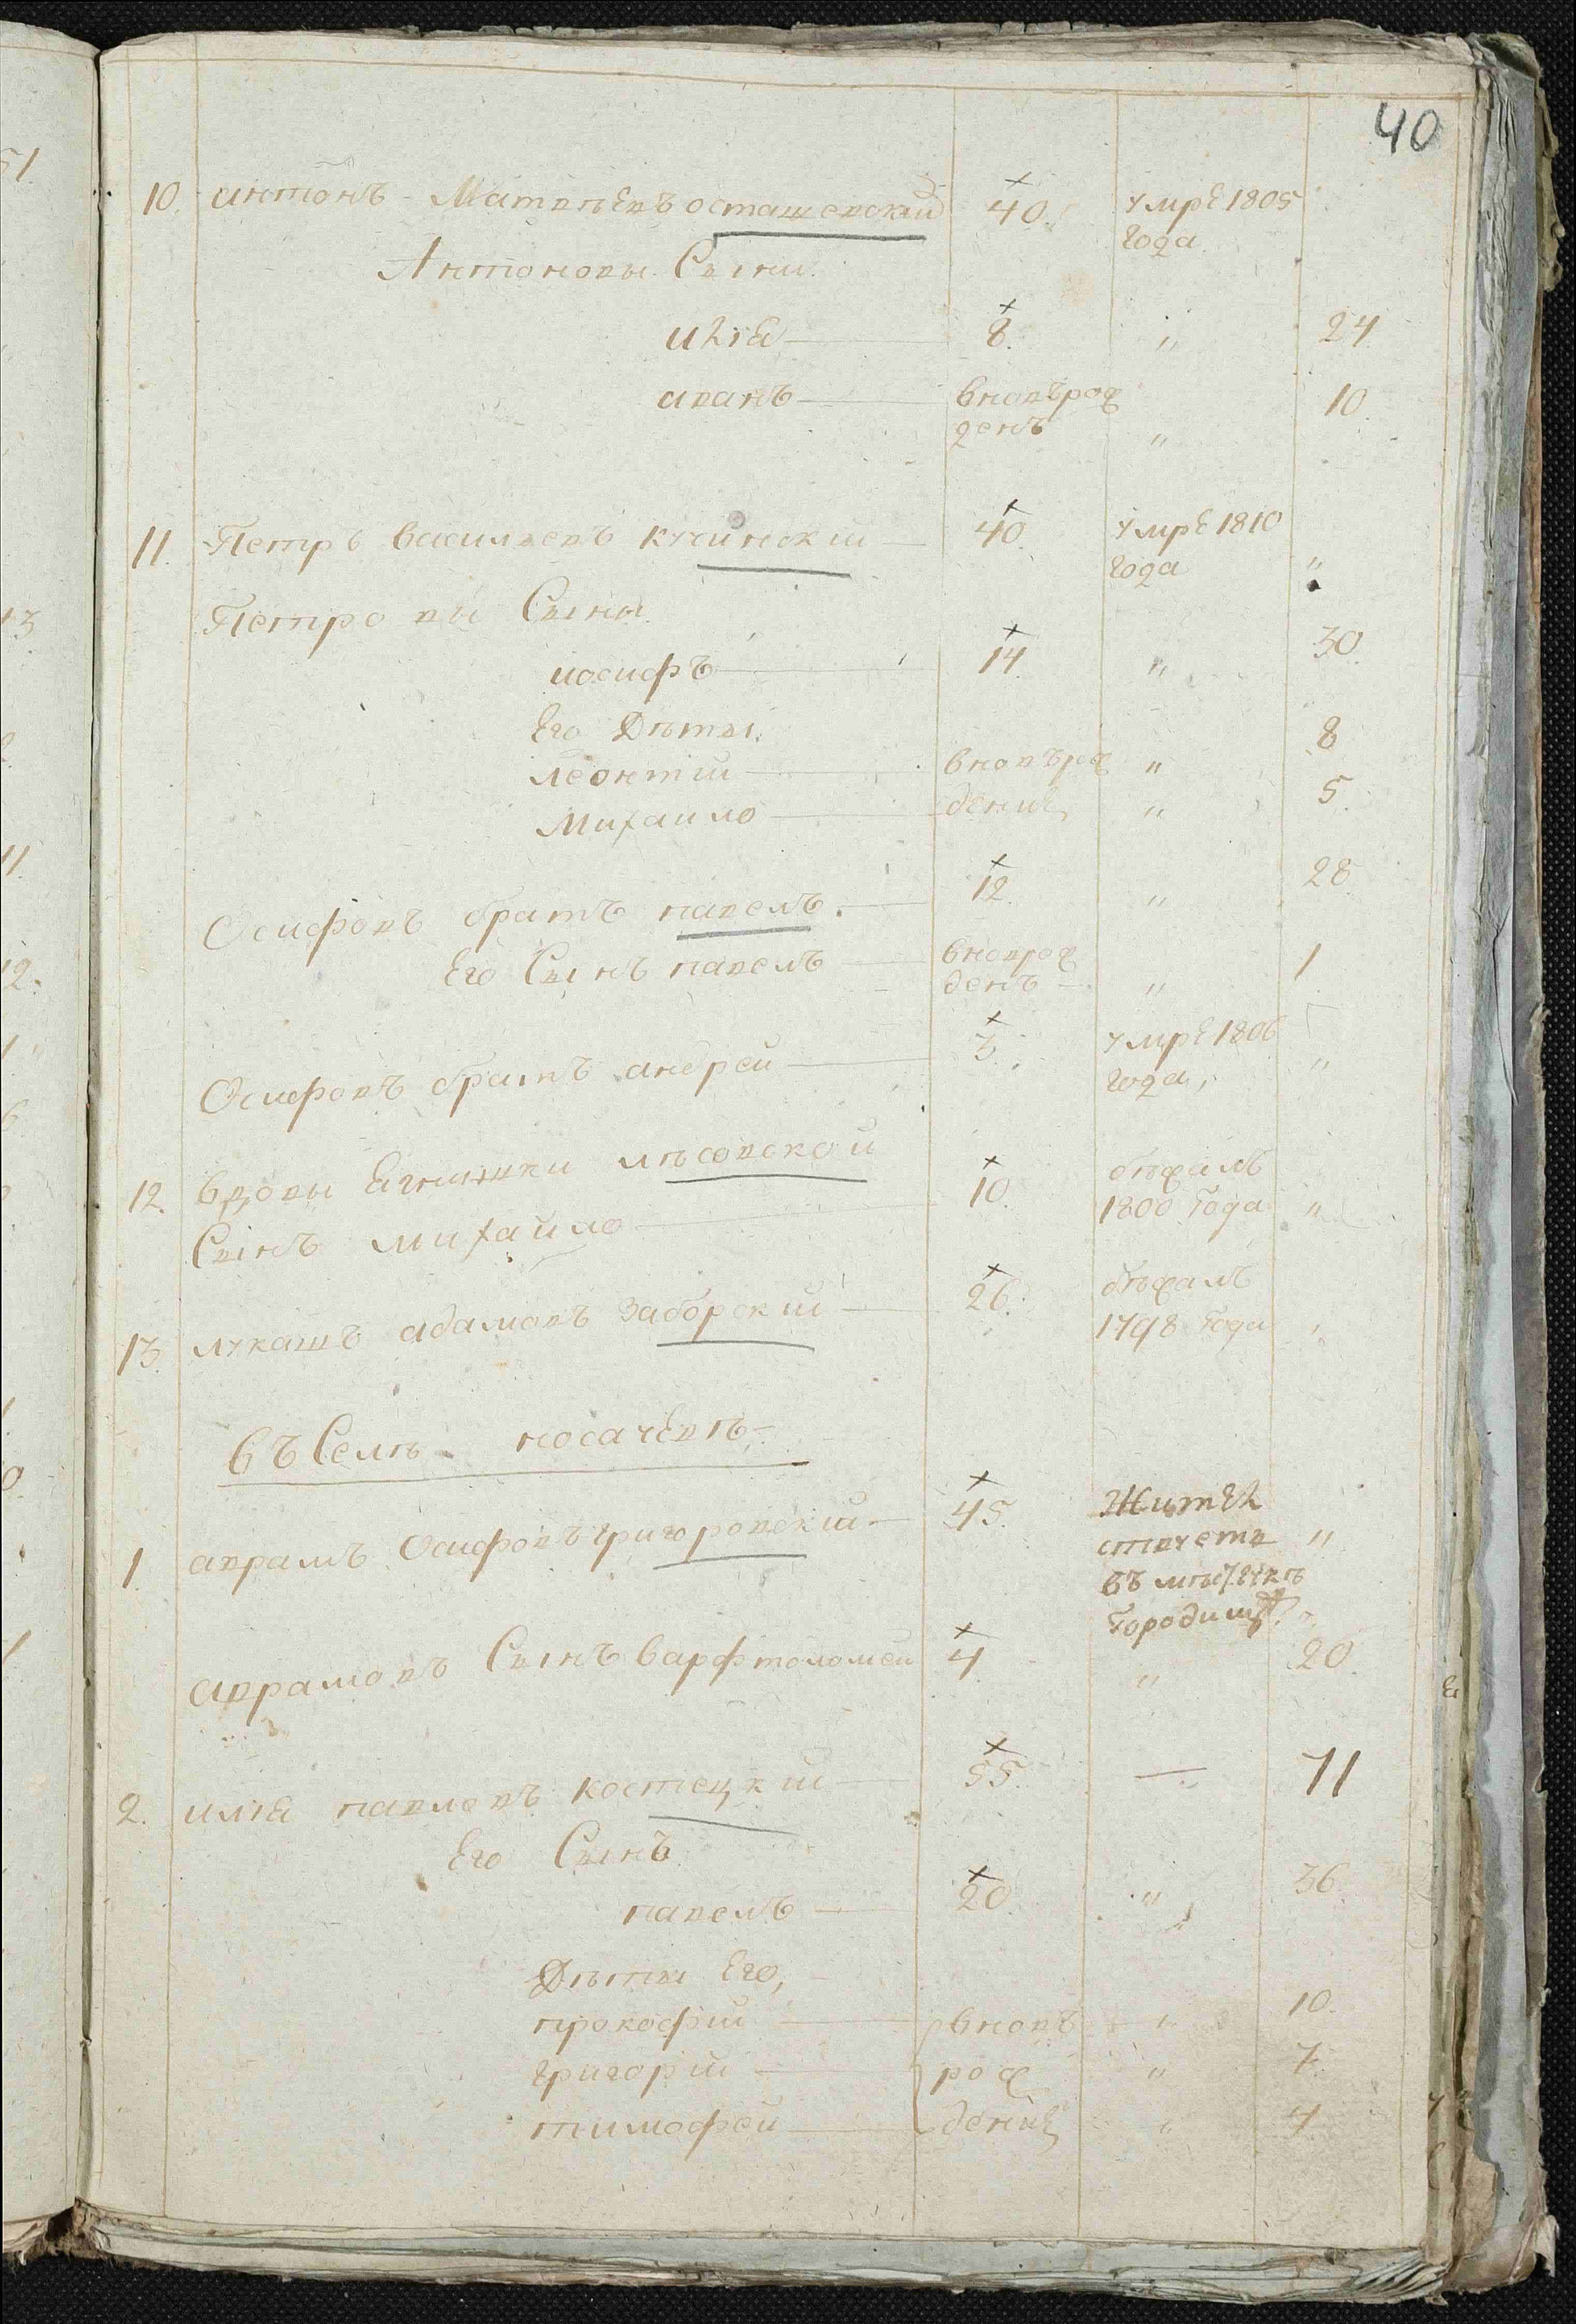 40
10. антонъ Матвѣевъ осташевский 40. умре 1805
года
Антоновы Сыни.
илiя 8. " 24
иванъ вновърож 10.
денъ "
11. Петръ васильевъ кучинский 40. умре 1810
года "
Петро вы Сыны.
иосифъ 14 " 30.
Его Дѣти. 8
леонтий вновърож "
Михаило дение " 5.
Осифовъ братъ павелъ. 12. " 28.
Его Сынъ павелъ вноврож 1
денъ "
Осифовъ братъ андрей 3. умре 1806
года, "
12. вдовы лѣсовской бѣжалъ
Сынъ михаило 10. 1800 Года "
13. лукашъ адамовъ Заборский 26. бѣжалъ
1798 Года "
въ Селѣ носачевѣ
1. аврамъ Осифовъ григоровский 45. Жител
ствуетъ "
въ
Городищѣ
аврамовъ Сынъ варфтоломей 4 " 20.
2. илiя павловъ костецкий 55. — 71
Его Сынъ
павелъ 20. " 36.
Дѣти Его,
прокофий вновъ " 10.
григорий рож " 7.
тимофей дение " 4.